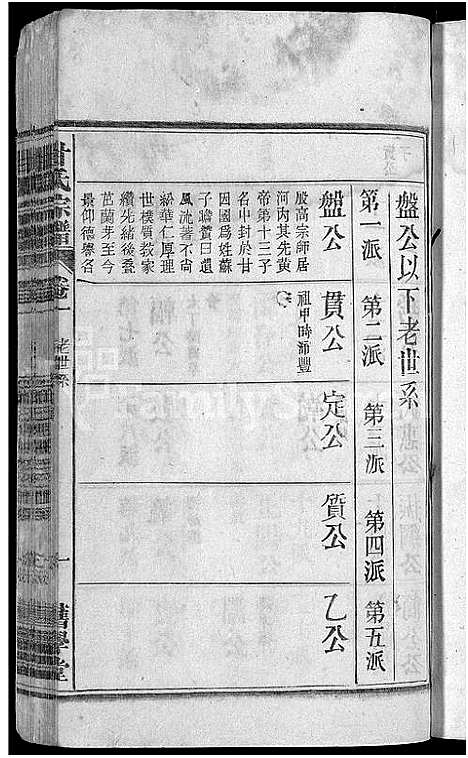 盤公以下老世系
第一派
第二派
第三派
第四派
第五派
盤公
殷高宗師居
河內其先黃
帝第十三子
名中封於甘
因國爲姓蘇
子瞻贊曰遺
風流著不尙
紛華仁厚理
世樸質敎家
纘先緒後系
芭蘭芽至今
景仰德譽名
貫公
祖甲時沛豐
定公
質公
乙公
甘氏宗譜
卷一
老世系
一
舊學堂